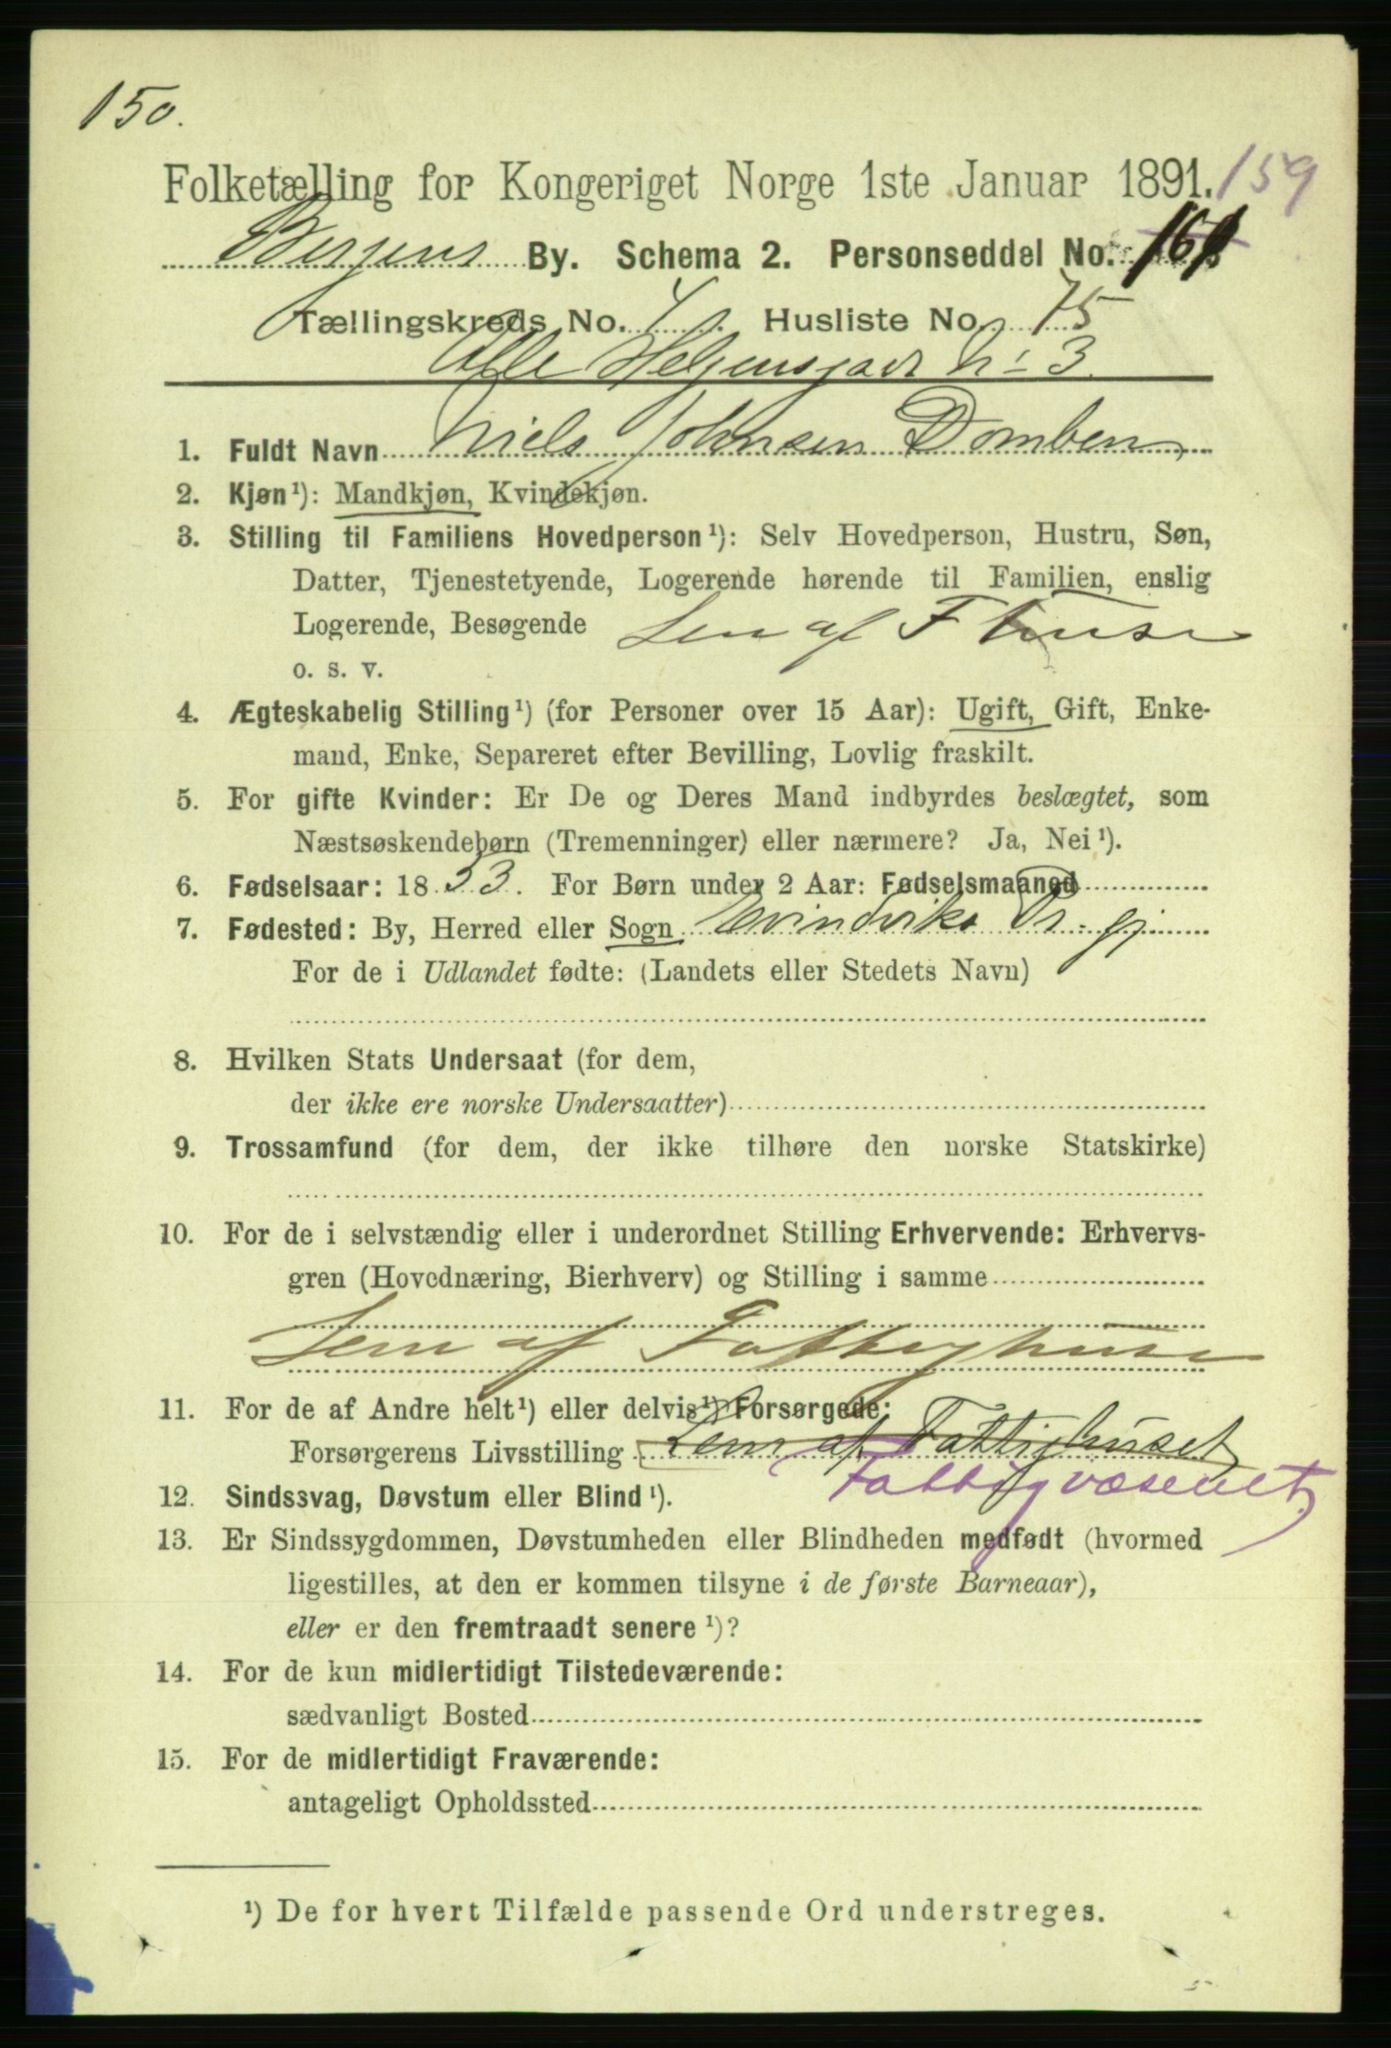 150.
Folketælling for Kongeriget Norge 1ste Januar 1891. 159
Bergens By. Schema 2. Personseddel No.
Tællingskreds No. 4. Husliste No. 75
Alle Helgensgade No 3.
1. Fuldt Navn Niels Johnsen Domben
2. Kjøn¹): Mandkjøn, Kvindekjøn.
3. Stilling til Familiens Hovedperson¹): Selv Hovedperson, Hustru, Søn,
Datter, Tjenestetyende, Logerende hørende til Familien, enslig
Logerende, Besøgende Lem af F huse
o. s. v.
4. Ægteskabelig Stilling¹) (for Personer over 15 Aar): Ugift, Gift, Enke-
mand, Enke, Separeret efter Bevilling, Lovlig fraskilt.
5. For gifte Kvinder: Er De og Deres Mand indbyrdes beslægtet, som
Næstsøskendebørn (Tremenninger) eller nærmere? Ja, Nei¹).
6. Fødselsaar: 1833. For Børn under 2 Aar: Fødselsmaaned
7. Fødested: By, Herred eller Sogn Evindviks Pr.gj
For de i Udlandet fødte: (Landets eller Stedets Navn)
8. Hvilken Stats Undersaat (for dem,
der ikke ere norske Undersaatter)
9. Trossamfund (for dem, der ikke tilhøre den norske Statskirke)
10. For de i selvstændig eller i underordnet Stilling Erhvervende: Erhvervs-
gren (Hovednæring, Bierhverv) og Stilling i samme
Lem af Fattighuse
11. For de af Andre helt¹) eller delvis¹) Forsørgede:
Forsørgerens Livsstilling Lem af Fattighuset
Fattigvæsenet.
12. Sindssvag, Døvstum eller Blind¹).
13. Er Sindssygdommen, Døvstumheden eller Blindheden medfødt (hvormed
ligestilles, at den er kommen tilsyne i de første Barneaar),
eller er den fremtraadt senere¹)?
14. For de kun midlertidigt Tilstedeværende:
sædvanligt Bosted
15. For de midlertidigt Fraværende:
antageligt Opholdssted
¹) De for hvert Tilfælde passende Ord understreges.